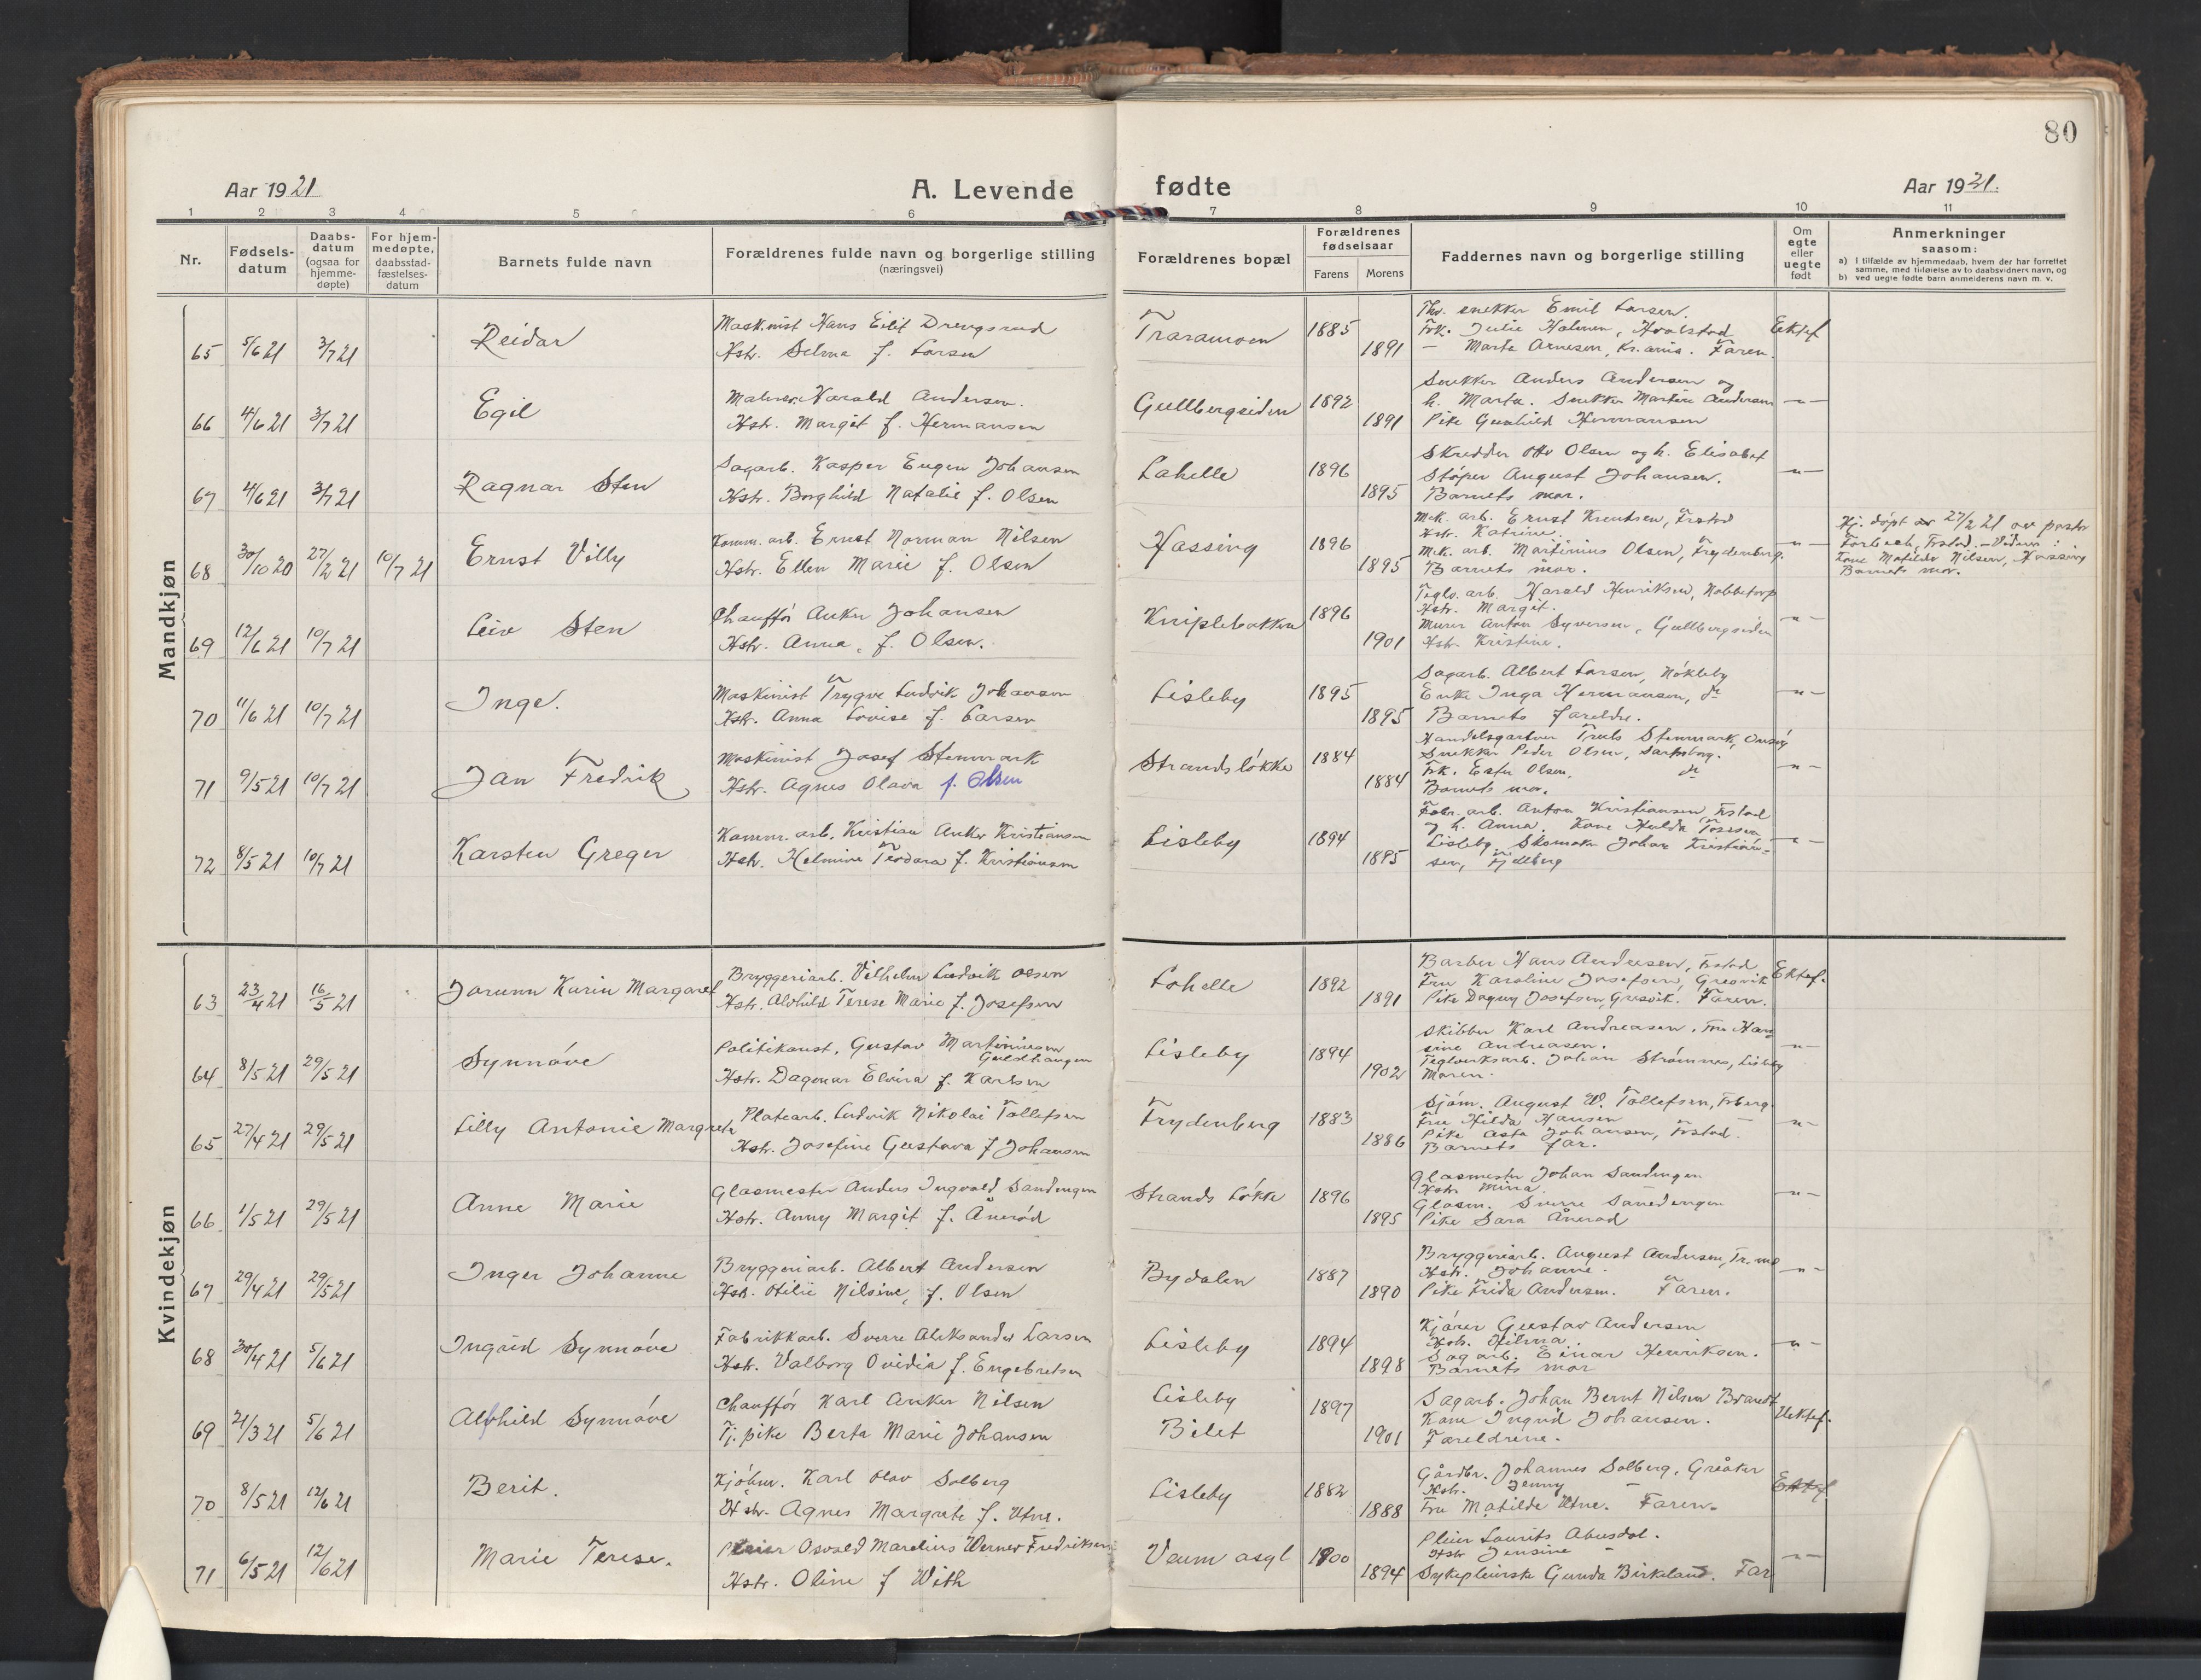 80
Aar 1921
A. Levende
fødte
Aar 1921.
1 2 3 4 5 6 7 8 9 10 11
Nr.
Fødsels-
datum
Daabs-
datum
(ogsaa for
hjemme-
døpte)
For hjem-
medøpte,
daabsstad-
fæstelses-
datum
Barnets fulde navn
Forældrenes fulde navn og borgerlige stilling
(næringsvei)
Forældrenes bopæl
Forældrenes
fødselsaar
Farens
Morens
Faddernes navn og borgerlige stilling
Om
egte
eller
uegte
født
Anmerkninger
saasom:
a) I tilfælde av hjemmedaab, hvem der har forrettet
samme, med tilføielse av to daabsvidners navn, og
b) ved uegte fødte barn anmelderens navn m. v.
Mandkjøn
65 5/6 21 3/7 21 Reidar
Maskinist Hans Eilif Drengsrud
Hstr. Selma f. Larsen
Traramoen 1885 1891
Thv. snekker Emil Larsen.
Frk. Julie Holmen, Hvalstad
— Marta Arnesen, Kr.ania. Faren.
Ektef
66 4/6 21 3/7 21 Egil
Malersv. Harald Andersen.
Hstr. Margit f. Hermansen
Gullbergsiden 1892 1891
Snekker Anders Andersen og
h. Marta. Snekker Martin Andersen
Pike Gunhild Hermansen
—"—
67 4/6 21 3/7 21 Ragnar Sten
Sagarb. Kasper Eugen Johansen
Hstr. Borghild Natalie f. Olsen
Lahelle 1896 1895
Skredder Otto Olsen og h. Elisabet
Støper August Johansen.
Barnets mor.
—"—
68 30/10 20 27/2 21 10/7 21 Ernst Villy
Komm. arb. Ernst Norman Nilsen
Hstr. Ellen Marie f. Olsen
Hassing 1896 1895
Mek. arb. Ernst Knutsen, Frstad
Hstr. Katrine.
Mek. arb. Martinius Olsen, Frydenberg.
Barnets mor.
—"—
Hj. døpt 27/2 21 av pastor
Forbech, Frstad. – Vidner:
Kone Matilde Nilsen, Hassing
Barnets mor.
69 12/6 21 10/7 21 Leiv Sten
Chauffør Anker Johansen
Hstr. Anna, f. Olsen.
Kniplebakken 1896 1901
Teglv. arb. Harald Henriksen, Nabbetorp
Hstr. Margit.
Murer Anton Syversen, Gullbergsiden
Hstr. Kristine.
—"—
70 11/6 21 10/7 21 Inge.
Maskinist Trygve Ludvik Johansen
Hstr. Anna Lovise f. Larsen
Lisleby 1895 1895
Sagarb. Albert Larsen, Nøkleby
Enke Inga Hermansen, do
Barnets foreldre.
—"—
71 9/5 21 10/7 21 Jan Fredrik
Maskinist Josef Stenmark
Hstr. Agnes Olava f. Olsen
Strandsløkke 1884 1884
Handelsgartner Truls Stenmark, Onsøy
Snekker Peder Olsen, Sarpsborg.
Frk. Ester Olsen, do
Barnets mor.
—"—
72 8/5 21 10/7 21 Karsten Greger
Komm. arb. Kristian Anker Kristiansen
Hstr. Helmine Teodora f. Kristiansen
Lisleby 1894 1895
Fabr. arb. Anton Kristiansen, Frstad
og h. Anna. Kone Hulda
Lisleby, Skomaker Johan Kristian-
sen, Fjellberg
—"—
Kvindekjøn
63 23/4 21 16/5 21 Jorunn Karin Margaret
Bryggeriarb. Vilhelm Ludvik Olsen
Hstr. Alvhild Terese Marie f. Josefsen
Lahelle 1892 1891
Barber Hans Andresen, Frstad
Fru Karoline Josefsen, Gresvik
Pike Dagny Josefsen, Gresvik. Faren.
Ektef.
64 8/5 21 29/5 21 Synnøve
Politikonst. Gustav Martinusen
Guldhaugen
Hstr. Dagmar Elvira f. Karlsen
Lisleby 1894 1902
Skibber Karl Andreasen. Fru Han-
sine Andreasen.
Teglverksarb. Johan Strømnes, Lisleby
Moren.
—"—
65 27/4 21 29/5 21 Lilly Antonie Margrete
Platearb. Ludvik Nikolai Tollefsen
Hstr. Josefine Gustava f Johansen
Frydenberg 1883 1886
Sjøm. August W. Tollefsen, Frberg.
Fru Hilda Hansen —
Pike Asta Johansen, Frstad.
Barnets far.
—"—
66 1/5 21 29/5 21 Anne Marie
Glasmester Anders Ingvald Sandengen
Hstr. Anny Margit f. Ånerød
Strands Løkke 1896 1895
Glasmester Johan Sandengen
Hstr Mina
Glasm. Sverre Sandengen
Pike Sara Ånerød
—"—
67 29/4 21 29/5 21 Inger Johanne
Bryggeriarb. Albert Andersen
Hstr. Otilie Nilsine, f. Olsen
Bydalen 1887 1890
Bryggeriarb. August Andersen,
Hstr. Johanne.
Pike Frida Andersen. Faren.
—"—
68 30/4 21 5/6 21 Ingrid Synnøve
Fabrikkarb. Sverre Aleksander Larsen
Hstr. Valborg Ovidia f. Engebretsen
Lisleby 1894 1898
Kjører Gustav Andersen
Hstr. Hilma.
Sagarb. Einar Henriksen.
Barnets mor
—"—
69 21/3 21 5/6 21 Alfhild Synnøve
Chauffør Karl Anker Nilsen
Tj. pike Berta Marie Johansen
Lisleby
Bilet
1897 1901
Sagarb. Johan Bernt Nilsen Brandt
Kone Ingrid Johansen.
Foreldrene.
Uektef.
70 8/5 21 12/6 21 Berit.
Kjøbm. Karl Olav Solberg
Hstr. Agnes Margrete f. Utne.
Lisleby 1882 1888
Gårdbr. Johannes Solberg, Greåker
Hstr. Jenny —
Fru Matilde Utne. Faren.
Ektef
71 6/5 21 12/6 21 Marie Terese.
Pleier Osvald Marelius Werner Fredriksen
Hstr. Oline f With
Veum asyl 1900 1894
Pleier Laurits Abusdal.
Hstr Jensine —
Sykepleierske Gunda Birkeland. Far
—"—